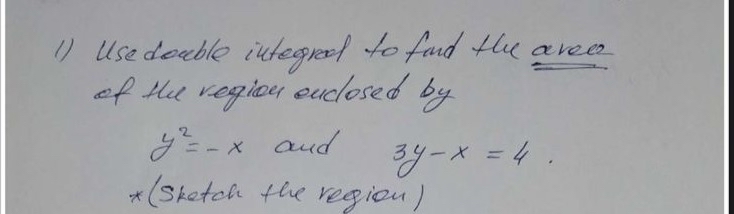 1) Use double integral to find the area
of the region enclosed by
y² = -x and 3y - x = 4 .
*(Sketch the region)